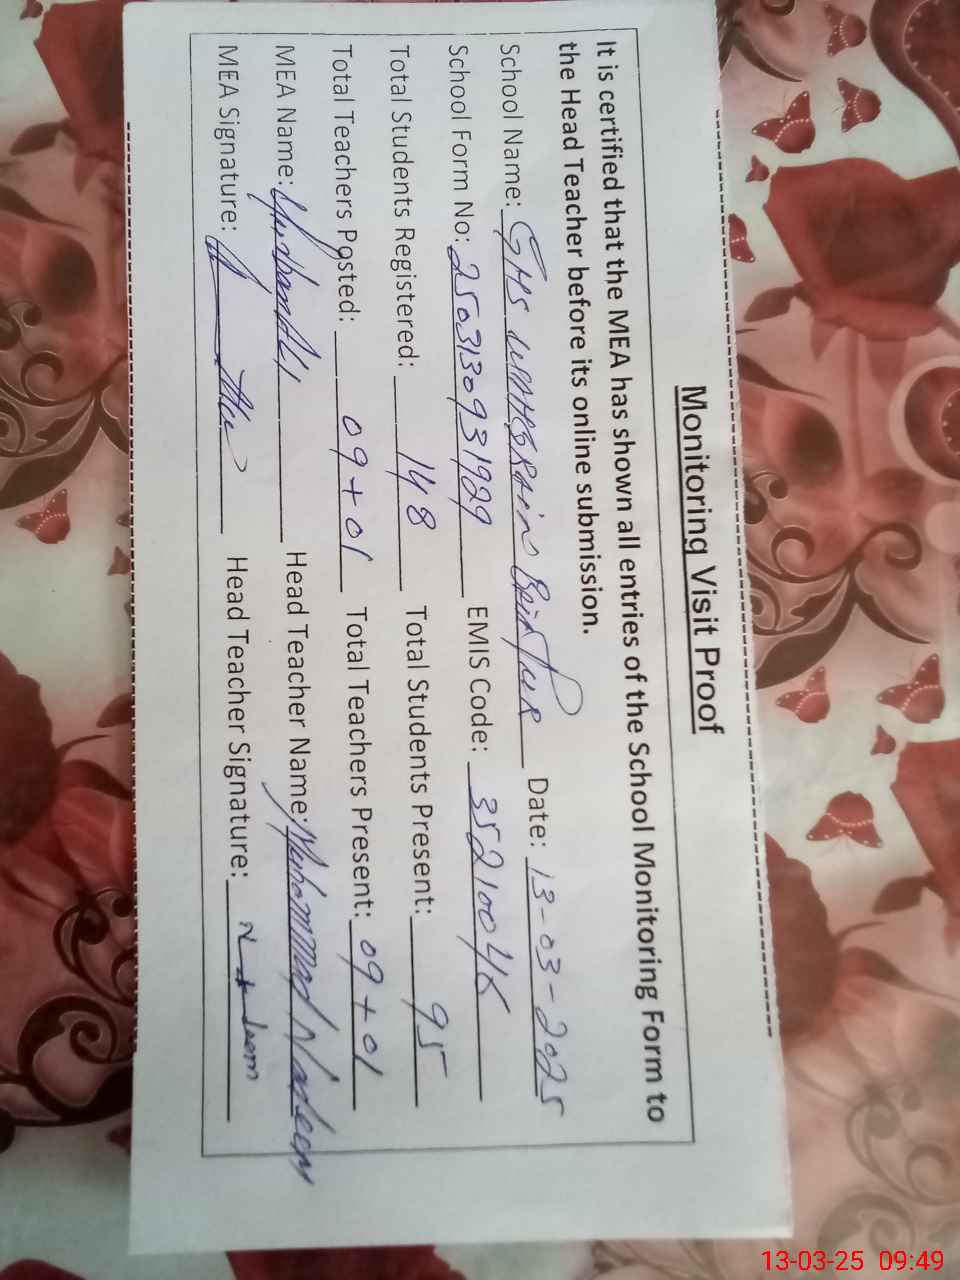 Monitoring Visit Proof
It is certified that the MEA has shown all entries of the School Monitoring Form to
the Head Teacher before its online submission.
School Name: GHS Date: 13-03-2025
School Form No: 2503130931929 EMIS Code:
Total Students Registered: 148 Total Students Present: 95
Total Teachers Posted: 09+01 Total Teachers Present: 09+01
MEA Name: Head Teacher Name: Muhammad Nadeem
MEA Signature: Head Teacher Signature:
13-03-25 09:49